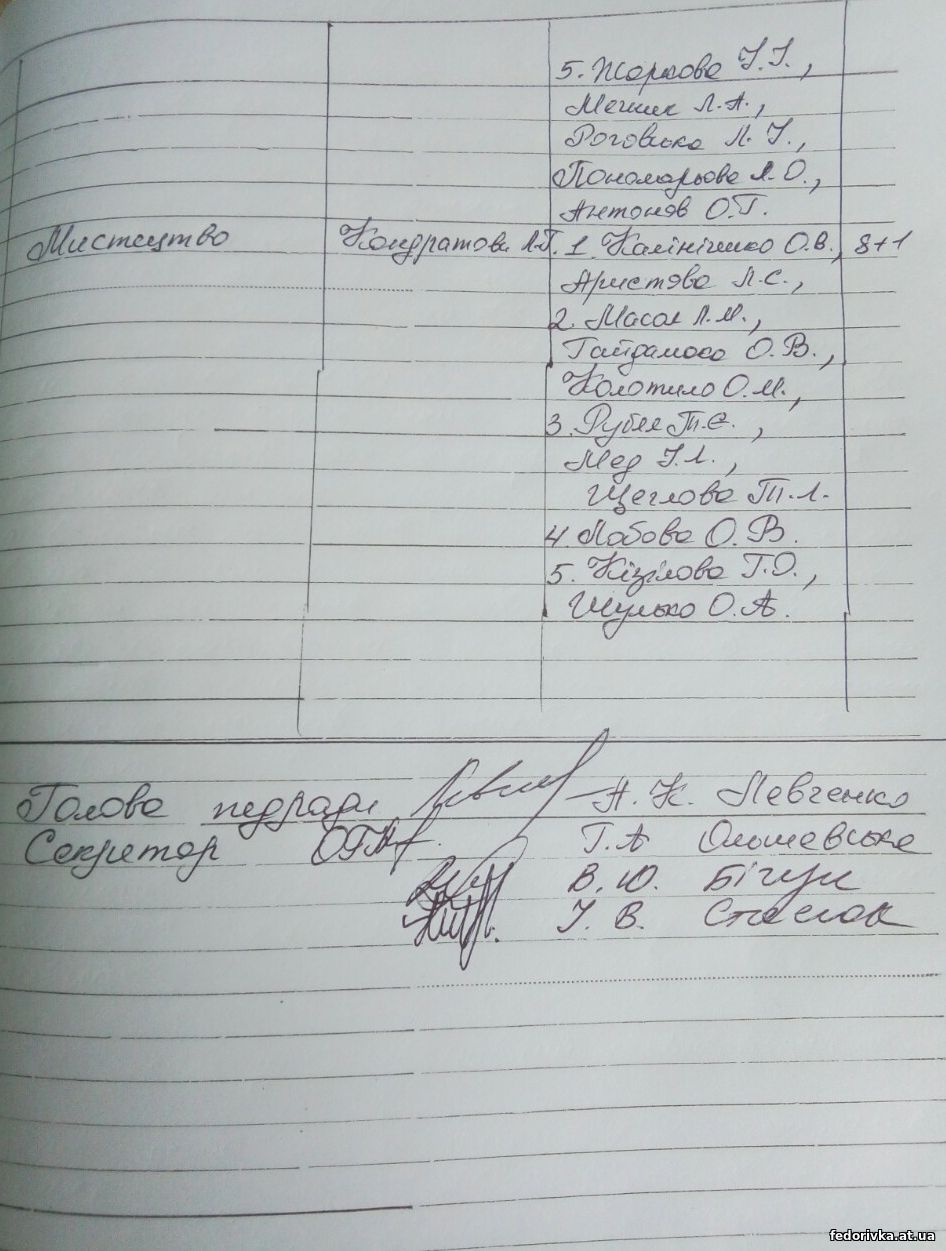 5. Жаркова І.І.,
Мечник Л.А.,
Роговська Л.І.,
Пономарьова Л.О.,
Антонов О.Г.
Мистецтво Кондратова Л.Г. 1. Калініченко О.В., 8+1
Аристова Л.С.,
2. Масол Л.М.,
Гайдамака О.В.,
Колотило О.М.,
3. Рубля Т.Є.,
Мед І.Л.,
Щеглова Т.Л.
4. Лобова О.В.
5. Кізілова Г.О.,
Шулько О.А.
Голова педради А.К. Левченко
Секретар Г.А Ольшевська
В.Ю. Бігун
І.В. Стасюк
fedorivka.at.ua